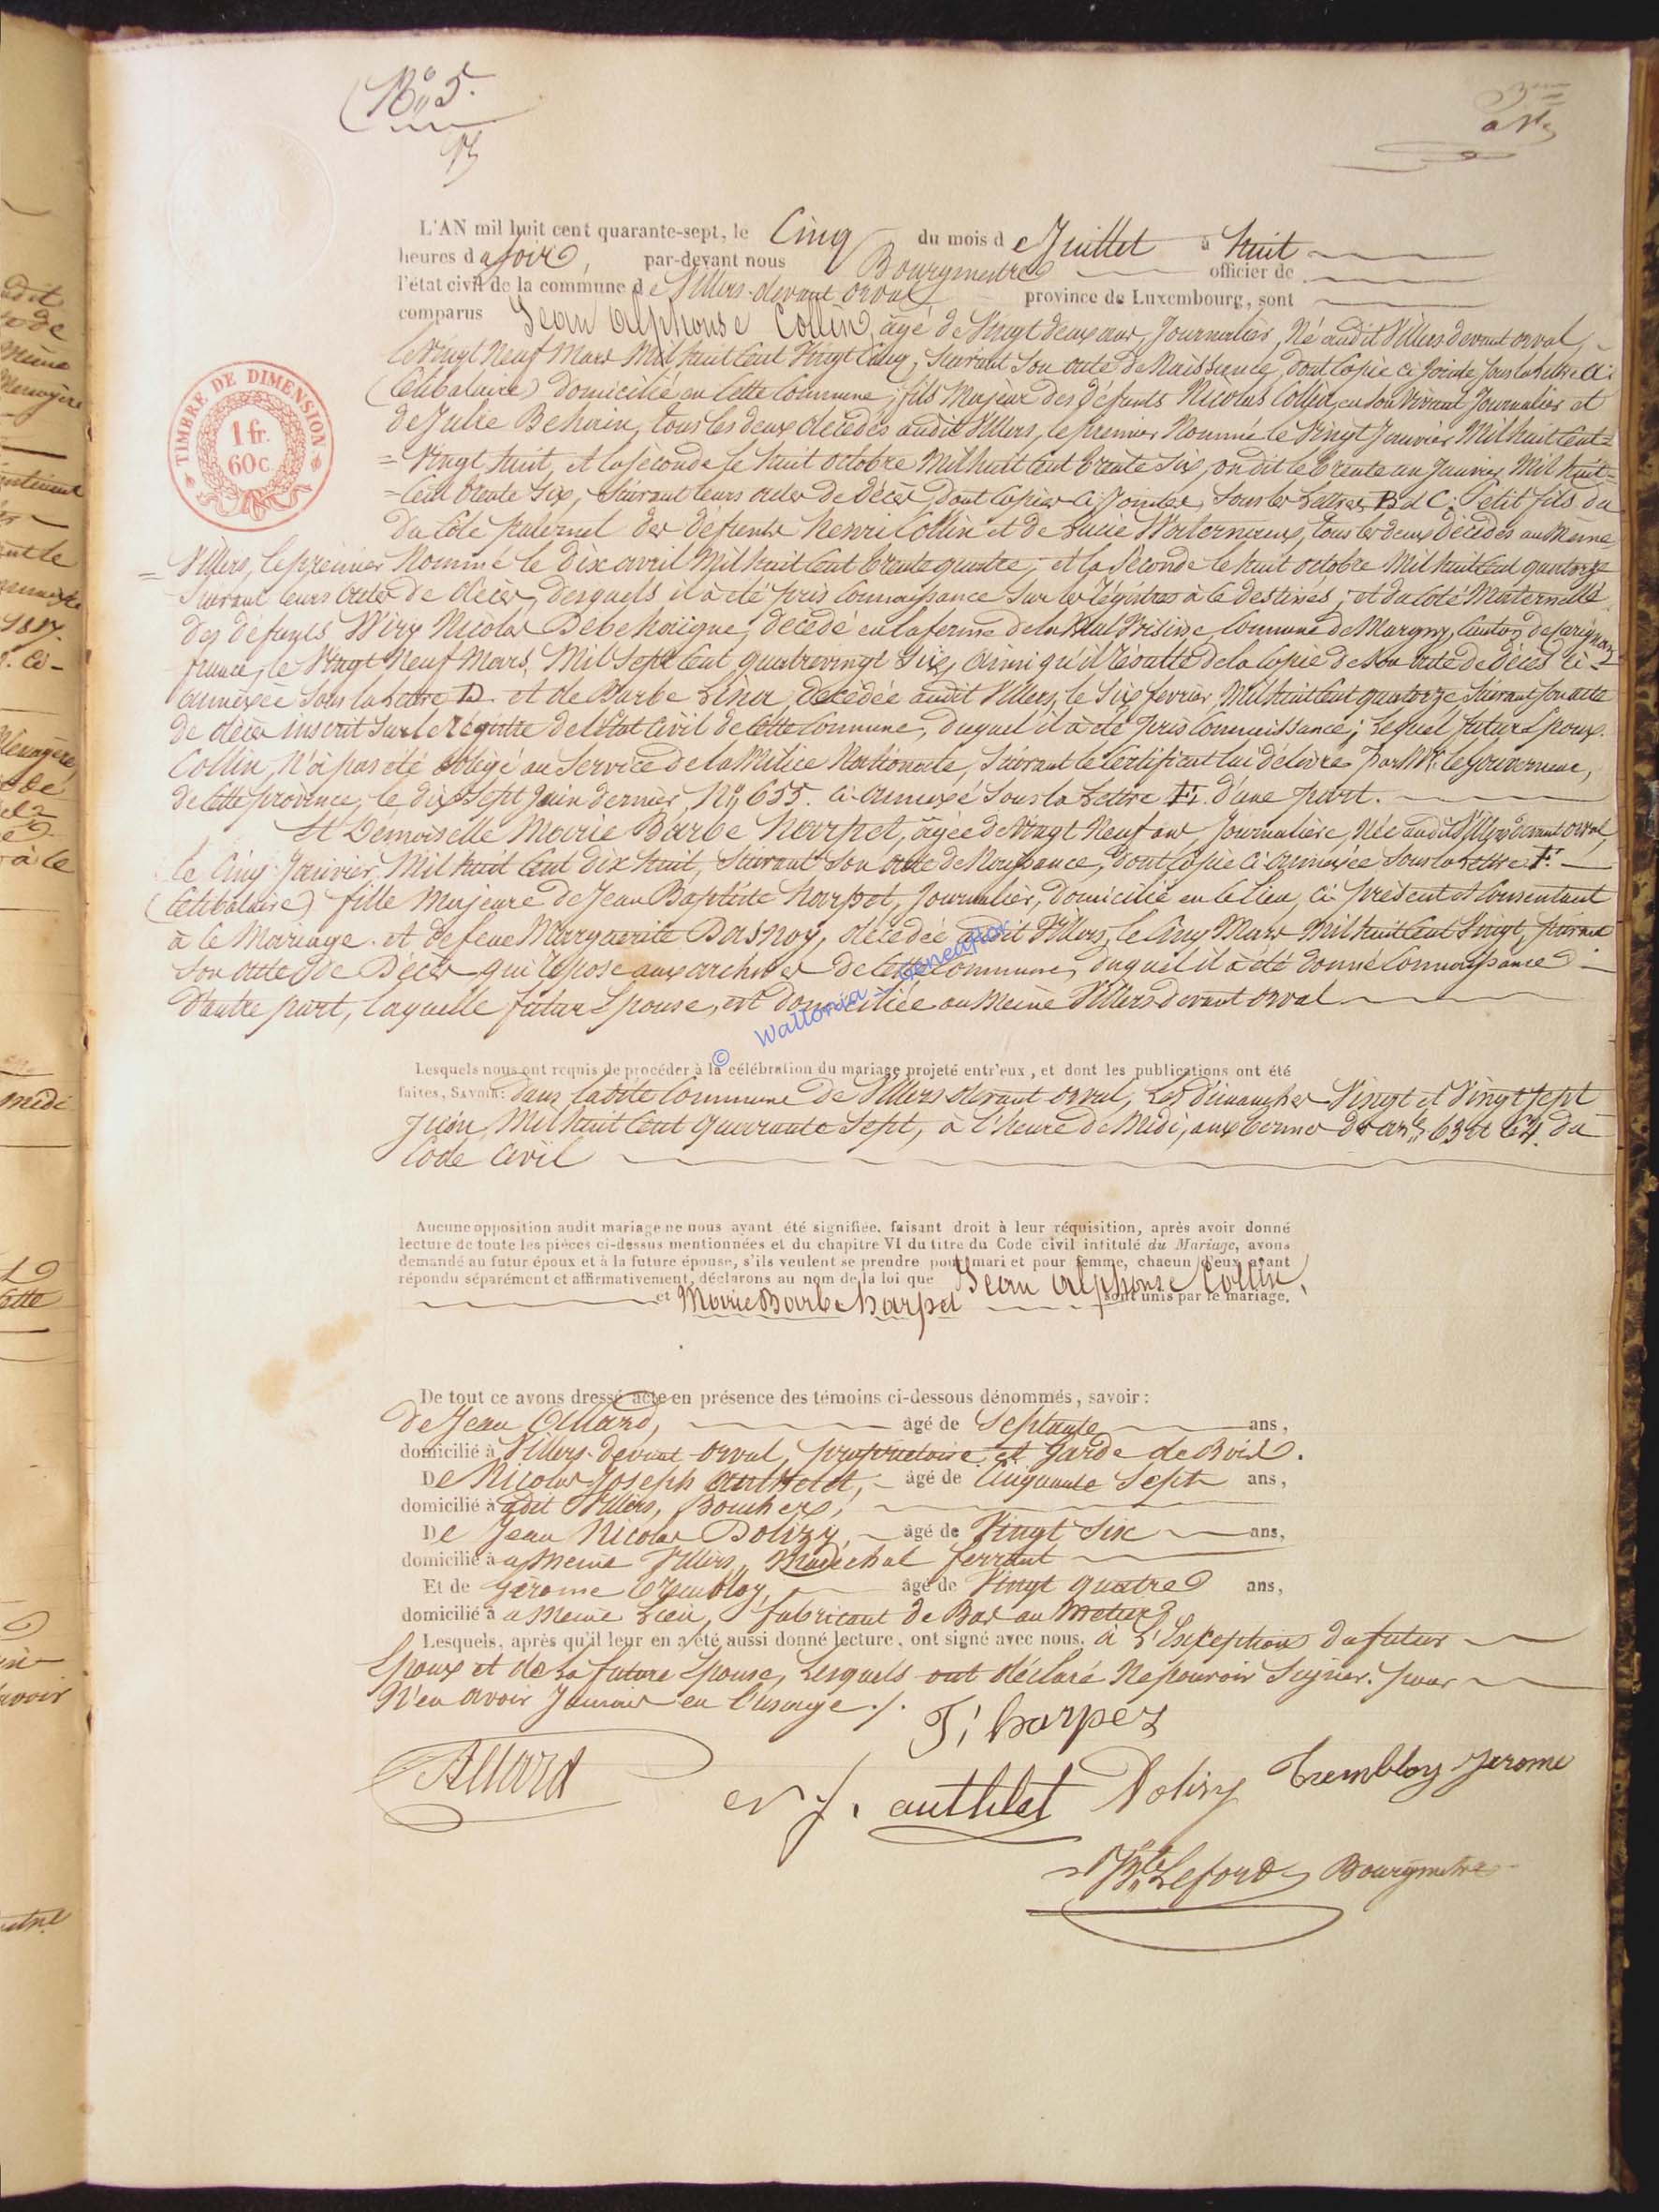 N° 5.
TIMBRE DE DIMENSION
1 fr.
60 c.
L'AN mil huit cent quarante-sept, le Cinq du mois de Juillet à huit
heures du soir, par-devant nous Bourgmestre officier de
l'état civil de la commune de Villers-devant orval province de Luxembourg, sont
comparus Jean Alphonse Collin, agé de Vingt deux ans, Journalier, Né audit Villers devant orval,
le Vingt Neuf Mars Mil huit Cent Vingt Cinq, Suivant Son acte de Naissance, dont Copie ci Jointe sous la lettre A.
(Célibataire) domicilié en Cette Commune, fils Majeur des défunts Nicolas Collin, en son vivant Journalier et
de Julie Behain, tous les deux décédés audit Villers, le premier Nommé le Vingt Janvier Mil huit Cent=
=Vingt huit, et la Seconde le huit octobre Mil huit Cent trente Six, on dit le trente un Janvier Mil huit=
=Cent trente Six, Suivant leurs actes de Décès, dont Copies Ci Jointes, Sous les Lettres B et C. Petit fils du
du Coté paternel des défunts Henri Collin et de Lucie, tous les deux Décédés au Même
= Villers, le premier Nommé le Dix avril Mil huit Cent trente quatre, et la Seconde le huit octobre Mil huit Cent quatorze
Suivant leurs actes de décès, desquels il à été pris Connaissance Sur les Régistres à ce destinés; et du Coté Maternelle
des défunts Wirx Nicolas Debehaigne, décédé en la ferme de la, Commune de Margny, Canton de Carignan
france, le Vingt Neuf Mars, Mil Sept Cent quatrevingt Six, ainsi qu'il Résulte de la Copie de Son acte de Décès Ci
annexée Sous la Lettre D. et de Barbe Lina, décédée audit Villers, le Six fevrier Mil huit Cent quatorze Suivant son acte
de décès inscrit Sur le Régistre de l'Etat Civil de Cette Commune, duquel il à été pris Connaissance; Lequel futur Epoux.
Collin, N'à pas été obligé au Service de la Milice Nationale, Suivant le Certificat lui délivré Par Mr. le Gouverneur,
de Cette province, le dix Sept Juin dernier, N° 655. Ci annexé Sous la Lettre E. d'une part.
Et Demoiselle Marie Barbe Harpet, agée de Vingt Neuf ans, Journalière, Née audit Villers devant orval,
le Cinq Janvier, Mil huit Cent dix huit, Suivant Son acte de Naissance, dont Copie Ci annexée Sous la Lettre F.
(Célibataire) fille Majeure de Jean Baptiste Harpet, Journalier, domicilié en Ce Lieu, Ci présent et Consentant
à Ce Mariage. et de feue Marguerite Dasnoy, décédée audit Villers, le Cinq Mars Mil huit Cent Vingt, suivant
Son acte de Décès qui Repose aux archives de Cette Commune, duquel il à été donné Connaissance
D'autre part, Laquelle future Epouse, est domiciliée au Même Villers devant orval
© Wallonia - Geneaflor
Lesquels nous ont requis de procéder à la célébration du mariage projeté entr'eux, et dont les publications ont été
faites, SAVOIR: dans ladite Commune de Villers devant orval, Les dimanches Vingt et Vingt Sept
Juin, Mil huit Cent quarante Sept, à l'heure de Midi, aux termes des arts 63 et 64. du
Code Civil
Aucune opposition audit mariage ne nous ayant été signifiée, faisant droit à leur réquisition, après avoir donné
lecture de toute les pièces ci-dessus mentionnées et du chapitre VI du titre du Code civil intitulé du Mariage, avons
demandé au futur époux et à la future épouse, s'ils veulent se prendre pour mari et pour femme, chacun d'eux ayant
répondu séparément et affirmativement, déclarons au nom de la loi que Jean Alphonse Collin,
et Marie Barbe harpet sont unis par le mariage.
De tout ce avons dressé acte en présence des témoins ci-dessous dénommés, savoir:
de Jean Allard, agé de Septante ans,
domicilié à Villers-devant-orval, propriétaire et Garde de Bois.
De Nicolas Joseph authelet, agé de Cinquante Sept ans,
domicilié audit Villers, Boucher,
De Jean Nicolas Dolizy, agé de Vingt Six ans,
domicilié au Même Villers, Maréchal ferrant
Et de Jérome Trembloy, agé de Vingt quatre ans,
domicilié au Même Lieu, fabricant de Bas au Metier
Lesquels, après qu'il leur en a été aussi donné lecture, ont signé avec nous. à L'Exception du futur
Epoux et de la future Epouse, Lesquels ont déclaré Ne pouvoir Signer. pour
N'en avoir Jamais eu l'usage./.
J. harpez
Allard
N J. authelet Dolizy Trembloy Jerome
Bourgmestre